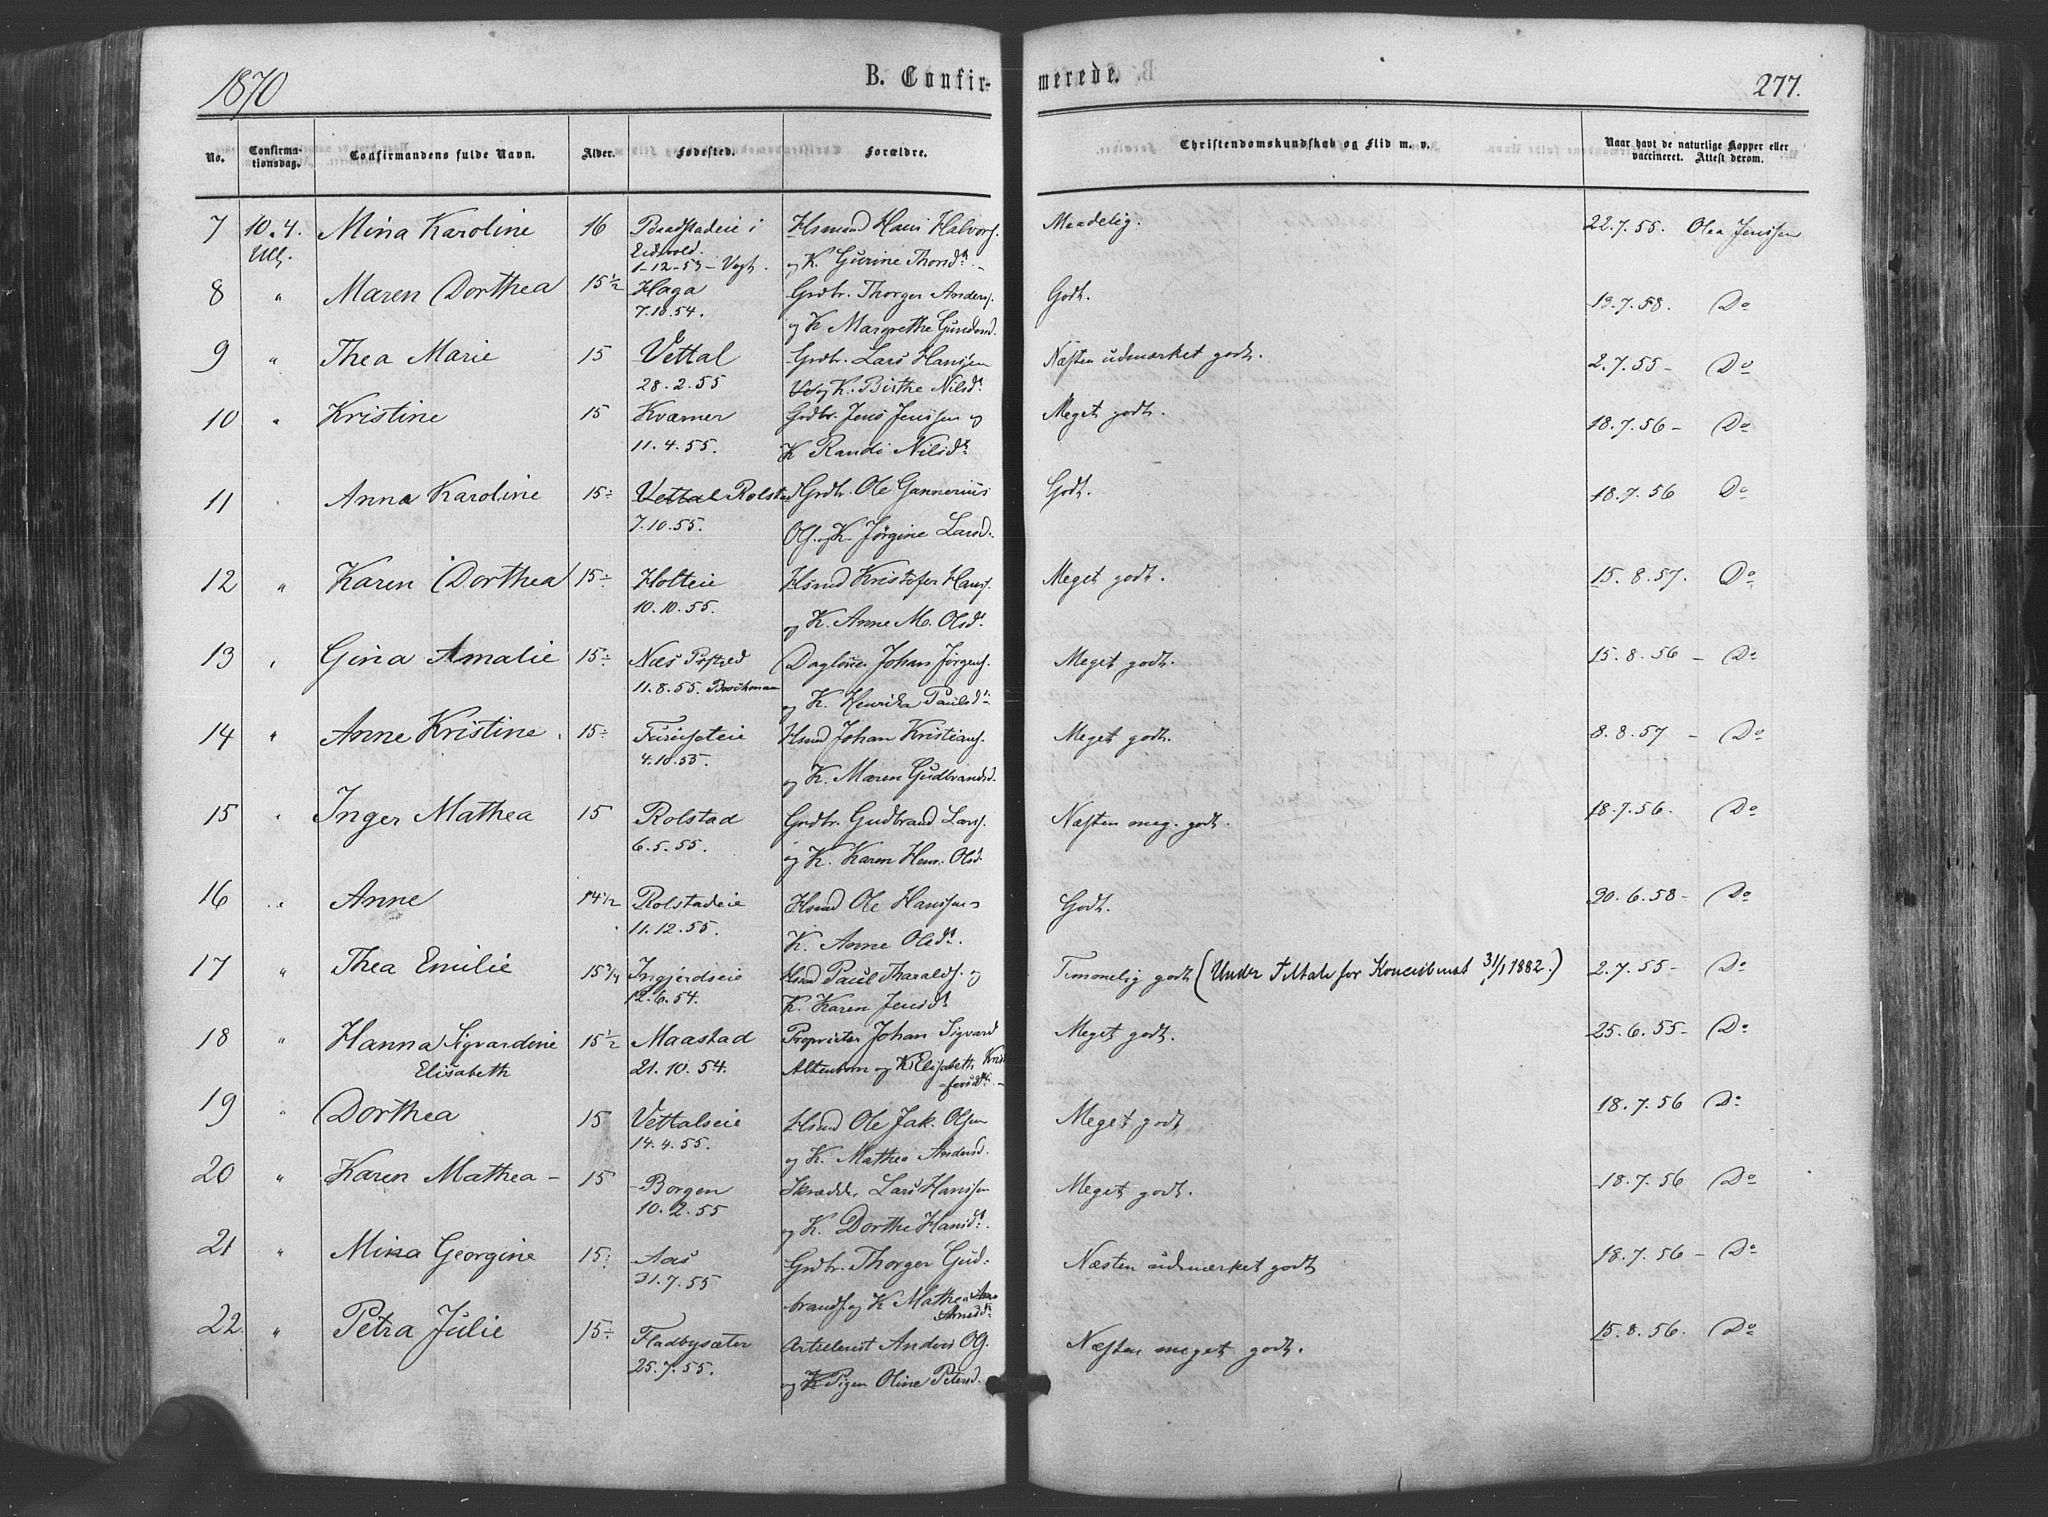 1870 B. Confirmerede. 277.
No. Confirmationsdag. Confirmandens fulde Navn. Alder. Fødested. Forældre. Christendomskundskab og Flid m. v. Naar havt de naturlige Kopper eller vaccineret. Attest derom.
7 10.4. Ull. Mina Karoline 16 i Eidsvold. 1-12-53 - Vogt. Hsmand Hans Halvors. og K. Gurine Thorsd. Maadelig. 22.7.55. Olea Jenssen
8 " Maren Dorthea 15½ Haga 7.10.54. Grdbr. Thorger Anders. og K Margrethe Gundersd. Godt. 19.7.58. Do
9 " Thea Marie 15 Vettal 28.2.55 Grdbr. Lars Hanssen og K. Birthe Nilsdr. Næsten udmærket godt. 2.7.55 - Do
10 " Kristine 15 Kværner 11.4.55. Grdbr. Jens Jenssen og K Randi Nilsdr. Meget godt. 18.7.56 - Do
11 " Anna Karoline 15÷ Vettal Rolstad 7.10.55. Grdbr. Ole Gunnerius Ols. og K. Jørgine Larsd. Godt. 18.7.56 Do
12 " Karen Dorthea 15÷ Holteie 10.10.55. Hsmd Kristofer Hans. og K. Anne M. Olsdr. Meget godt. 15.8.57. Do
13 " Gina Amalie 15÷ Næs Præstgd 11.8.55. Daglønner Johan Jørgens. og K. Henrika Paulsdr. Meget godt. 15.8.56 - Do
14 " Anne Kristine. 15÷ Furuseteie 4.10.55. Hsmd Johan Kristians. og K. Maren Gudbrandsd. Meget godt. 8.8.57 - Do
15 " Inger Mathea 15 Rolstad 6.5.55. Grdbr. Gudbrand Lars. og K. Karen Hen. Olsd. Næsten meg. godt. 18.7.56. Do
16 " Anne 14½ Rolstadeie 11.12.55. Hsmd Ole Hanssen K. Anne Olsdr. Godt. 30.6.58 - Do
17 " Thea Emilie 15¾ Ingjerdseie 12.6.54. Hsmd Paul Tharalds. og K. Karen Jensdr. Temmelig godt (Under Tiltale for Koncubinat 31/1 1882.) 2.7.55 - Do
18 " Hanna Sigvardine Elisabeth 15½ Maastad 21.10.54. Proprietær Johan Sigvard Altenborn og K Elisabeth Kristofersdr. Meget godt. 25.6.55 - Do
19 " Dorthea 15 Vettalseie 14.4.55. Hsmd Ole Jak. Olsen og K. Mathea Andersd. Meget godt 18.7.56 Do
20 " Karen Mathea - 15 Borgen 10.2.55 Skrædder Lars Hanssen og K. Dorthe Hansdr. Meget godt. 18.7.56 Do
21 " Mina Georgine 15÷ Aas 31.7.55 Grdbr. Thorger Gudbrands. og K Mathea Arnesdr. Næsten udmærket godt 18.7.56 - Do
22 " Petra Julie 15÷ Fladbysæter 25.7.55. Artillerist Anders Ols. og K Pigen Oline Petersd. Næsten meget godt. 15.8.56. Do